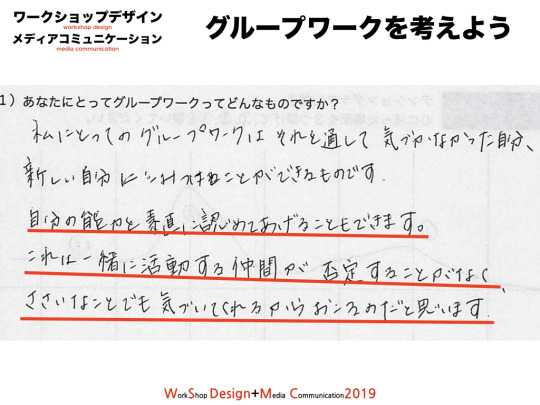 ワークショップデザイン
workshop design
メディアコミュニケーション
media communication
グループワークを考えよう
1）あなたにとってグループワークってどんなものですか？
私にとってのグループワークは それを通して 気づかなかった自分、
新しい自分に みつけることができるものです.
自分の能力を素直に認めてあげることもできます。
これは一緒に活動する仲間が 否定することがなく、
ささいなことでも気づいてくれるからおこるのだと思います.
WorkShop Design+Media Communication2019